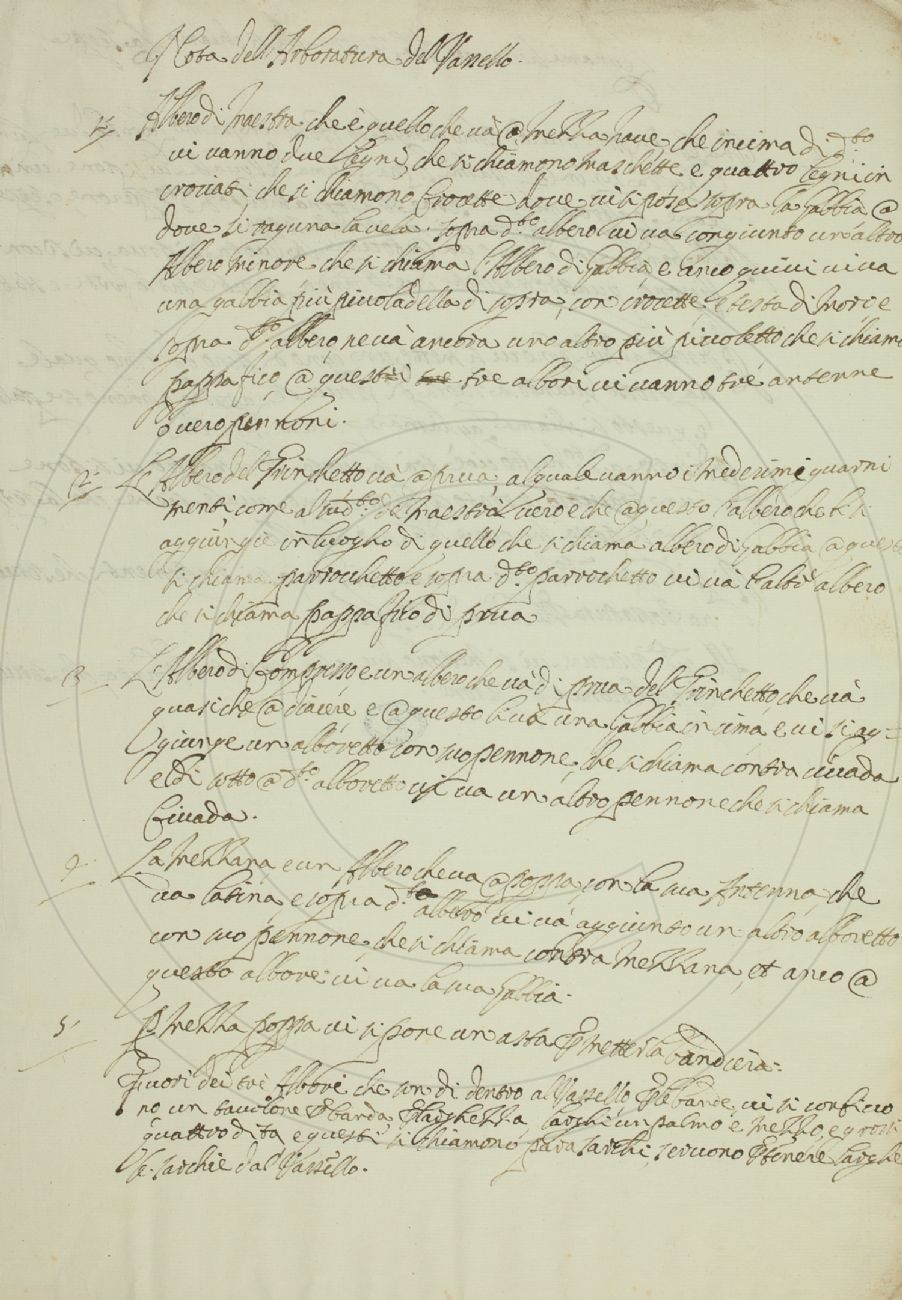 Nota dell'Arboratura del Vassello.
1º Albero di Maestra che è quello che và @ mezza nave, che in cima di dto
vi vanno due Legni, che si chiamono Maschette e quattro Legni in
crociati, che si chiamono Crocette dove vi si posa sopra la gabbia @
dove si raguna la vela. sopra dto albero vi va congiunto un altro
Albero minore che si chiama l'Albero di gabbia, e anco quivi vi va
una gabbia più piccola della di sopra, con crocette, e testa di moro e
sopra dto albero ne và ancora uno altro più piccoletto che si chiama
pappafico, @ questi tre albori vi vanno tré antenne
ò vero pennoni.
2º L'Albero del Trinchetto và @ prua, al quale vanno i medesimi guarni
menti come al sudto di Maestra, vero è che @ questo l'albero che li si
aggiungie in luogho di quello che si chiama albero di gabbia @ questo
si chiama parrochetto e sopra dto parrochetto vi và l'altro albero
che si chiama pappafico di prua
3 L'Albero di Compresso e un albero che và di prua del Trinchetto, che và
quasi che @ diacére e @ questo li và una Gabbia in cima, e vi si ag-
giunge un alboretto con suo pennone, che si chiama contra civada
e di sotto @ dto alboretto vi va un altro pennone che si chiama
Civada.
4 La Mezzana, e un Albero che va @ poppa, con la sua Antenna, che
va latina, e sopra dto albero vi và aggiunto un altro alboretto
con suo pennone, che si chiama contra Mezzana, et anco @
questo albore vi va la sua Gabbia.
5 P mezza poppa vi si pone un asta P metter la bandiera.
Fuori dei tré Albori che son di dentro al Vassello P le bande, vi si conficco
no un tavolone P banda P larghezza larghi un palmo e mezzo, e grossi
quattro dita, e questi si chiamono para sarchi, servono P tenere larghe
le sarchie dal Vassello.